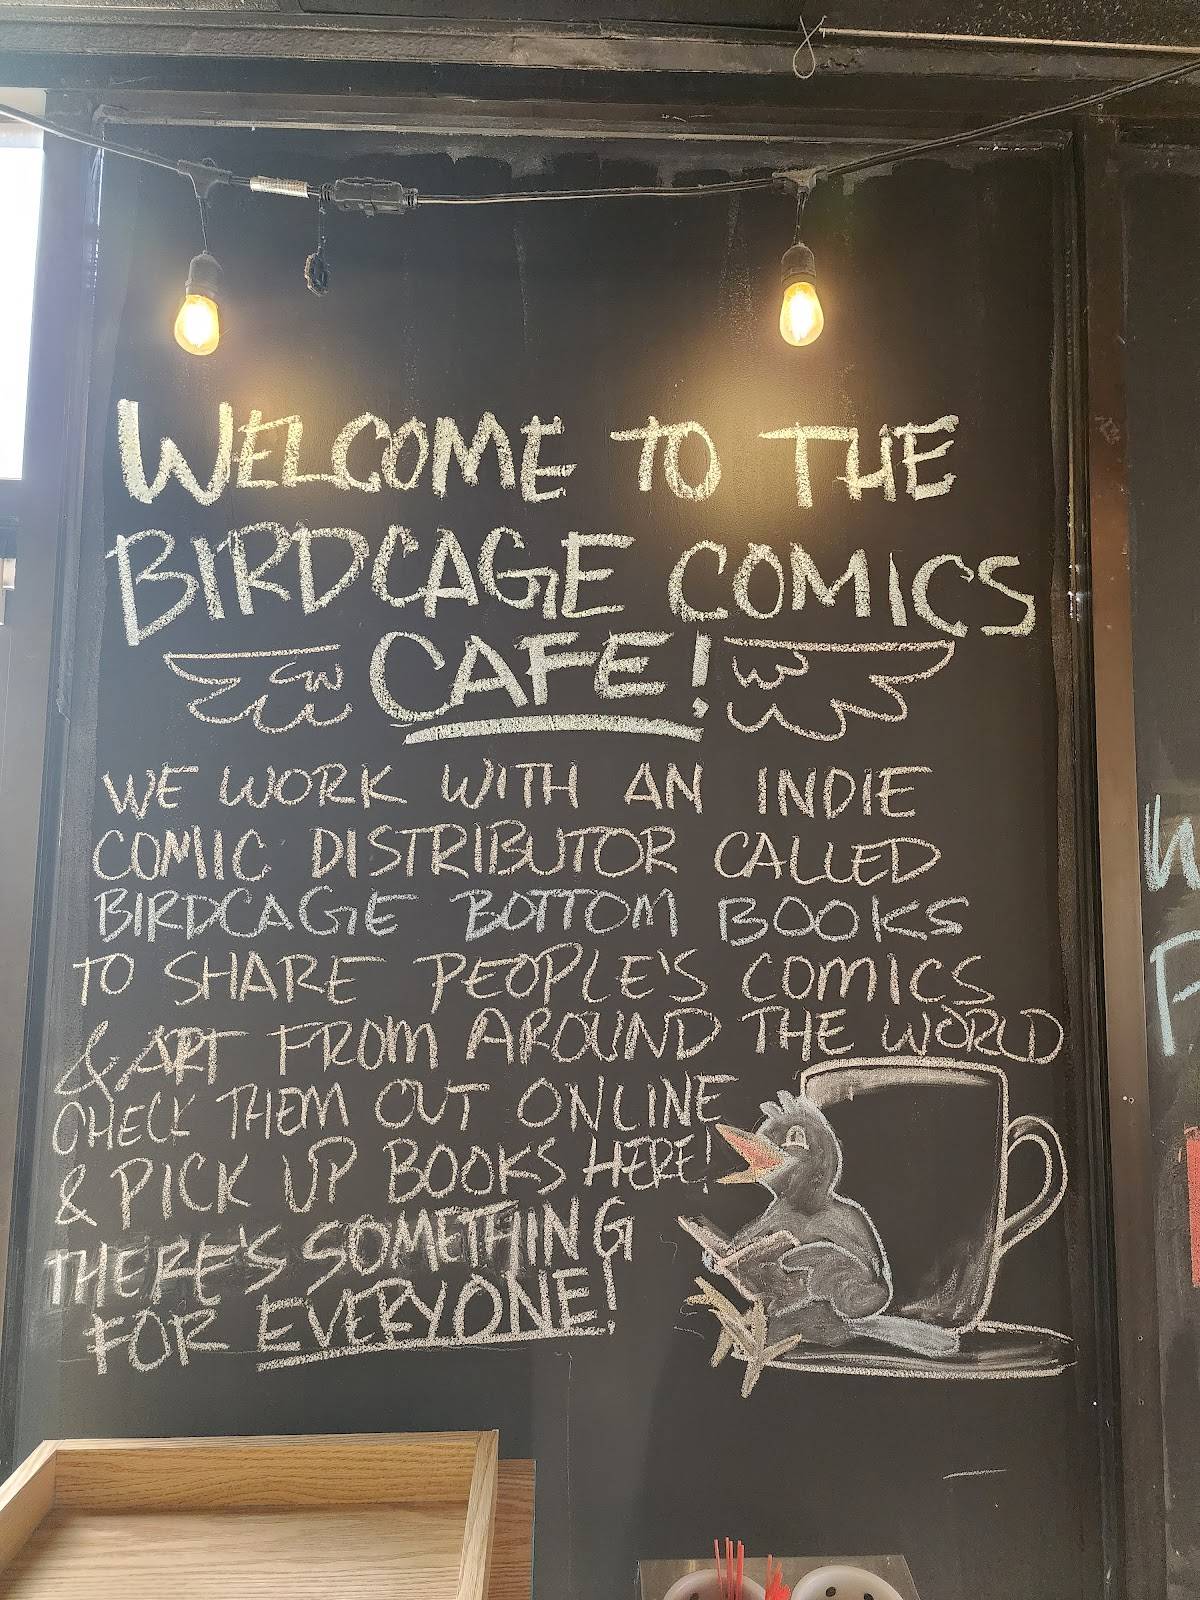 WELCOME TO THE
BIRDCAGE COMICS
CAFE!
WE WORK WITH AN INDIE
COMIC DISTRIBUTOR CALLED
BIRDCAGE BOTTOM BOOKS
TO SHARE PEOPLE'S COMICS
& ART FROM AROUND THE WORLD
CHECK THEM OUT ONLINE
& PICK UP BOOKS HERE!
THERE'S SOMETHING
FOR EVERYONE!